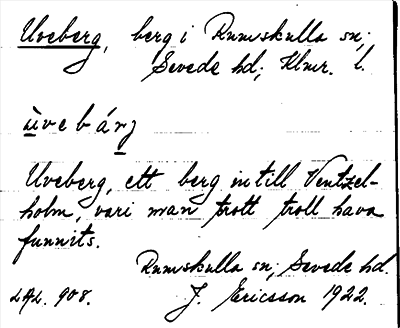 Uveberg, berg i Rumskulla sn;
Sevede hd; Klmr. l.
ùvebárj
Uveberg, ett berg intill Ventzel-
holm, vari man trott troll hava
funnits.
Rumskulla sn; Sevede hd.
908.
J. Ericsson 1922.